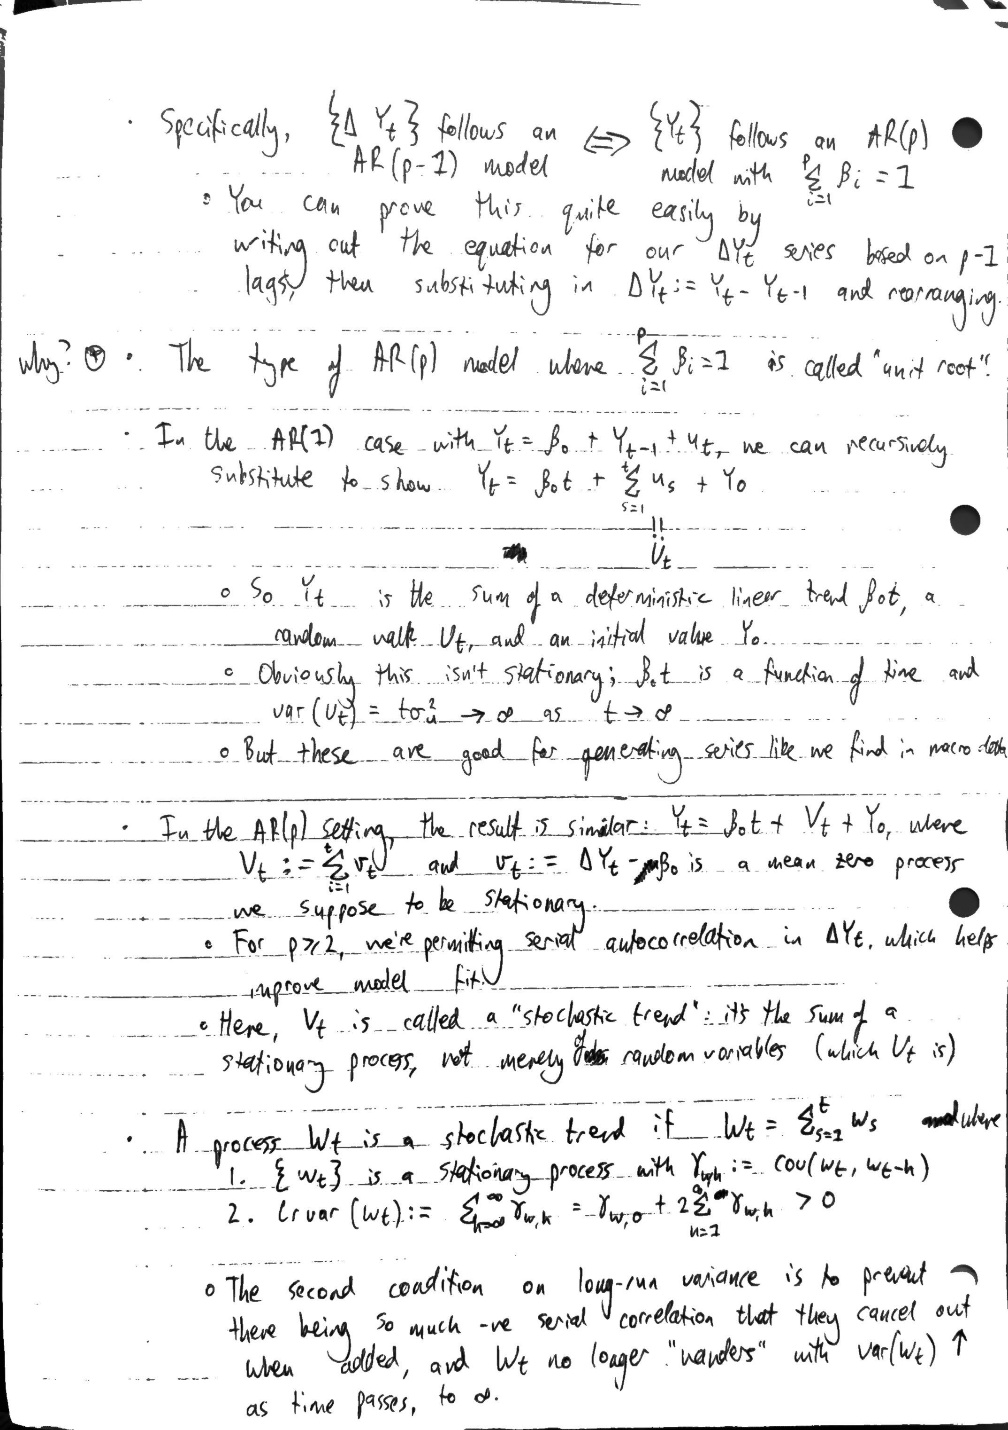 · Specifically, {Δ Yt} follows an ⇔ {Yt} follows an AR(p)
AR(p-1) model model with Σ_{i=1}^{p} βi = 1
∘ You can prove this quite easily by
writing out the equation for our ΔYt series based on p-1
lags, then substituting in ΔYt := Yt - Yt-1 and rearranging.
why? ⊕ · The type of AR(p) model where Σ_{i=1}^{p} βi = 1 is called "unit root".
· In the AR(1) case with Yt = β0 + Yt-1 + ut, we can recursively
substitute to show Yt = β0t + Σ_{s=1}^{t} us + Y0
!!
Ut
∘ So Yt is the sum of a deterministic linear trend β0t, a
random walk Ut, and an initial value Y0.
∘ Obviously this isn't stationary; β0t is a function of time and
var(Ut) = tσ²u → ∞ as t → ∞
∘ But these are good for generating series like we find in macro-data
· In the AR(p) setting, the result is similar: Yt = β0t + Vt + Y0, where
Vt := Σ_{i=1}^{t} vt and vt := ΔYt - β0 is a mean zero process
we suppose to be stationary.
∘ For p≥2, we're permitting serial autocorrelation in ΔYt, which helps
improve model fit.
∘ Here, Vt is called a "stochastic trend": it's the sum of a
stationary process, not merely of random variables (which Ut is)
· A process Wt is a stochastic trend if Wt = Σ_{s=1}^{t} ws where
1. {wt} is a stationary process with γw,h := cov(wt, wt-h)
2. lrvar(wt) := Σ_{h=-∞}^{∞} γw,h = γw,0 + 2Σ_{h=1}^{∞} γw,h > 0
∘ The second condition on long-run variance is to prevent
there being so much -ve serial correlation that they cancel out
when added, and Wt no longer "wanders" with var(Wt) ↑
as time passes, to ∞.